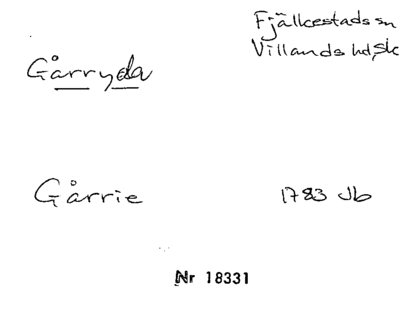 Fjälkestads sn
Villands hd, Sk
Gårryda
Gårrie 1783 Jb
Nr 18331